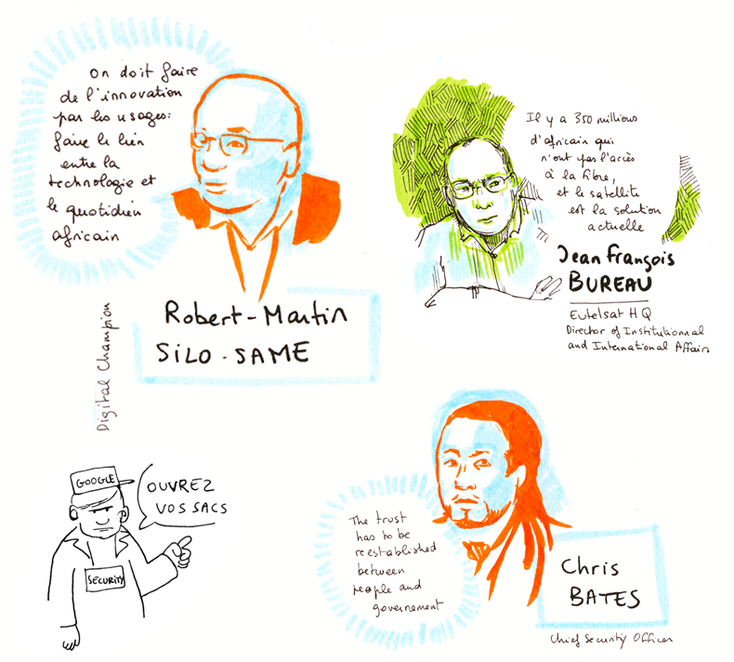 On doit faire
de l'innovation
par les usages:
faire le lien
entre la
technologie et
le quotidien
africain
Robert-Martin
SILO-SAME
Digital Champion
Il y a 350 millions
d'africain qui
n'ont pas l'accès
à la fibre,
et le satellite
est la solution
actuelle
Jean François
BUREAU
Eutelsat HQ
Director of Institutionnal
and International Affairs
GOOGLE
OUVREZ
VOS SACS
SECURITY
The trust
has to be
reestablished
between
people and
governement
Chris
BATES
Chief Security Officer